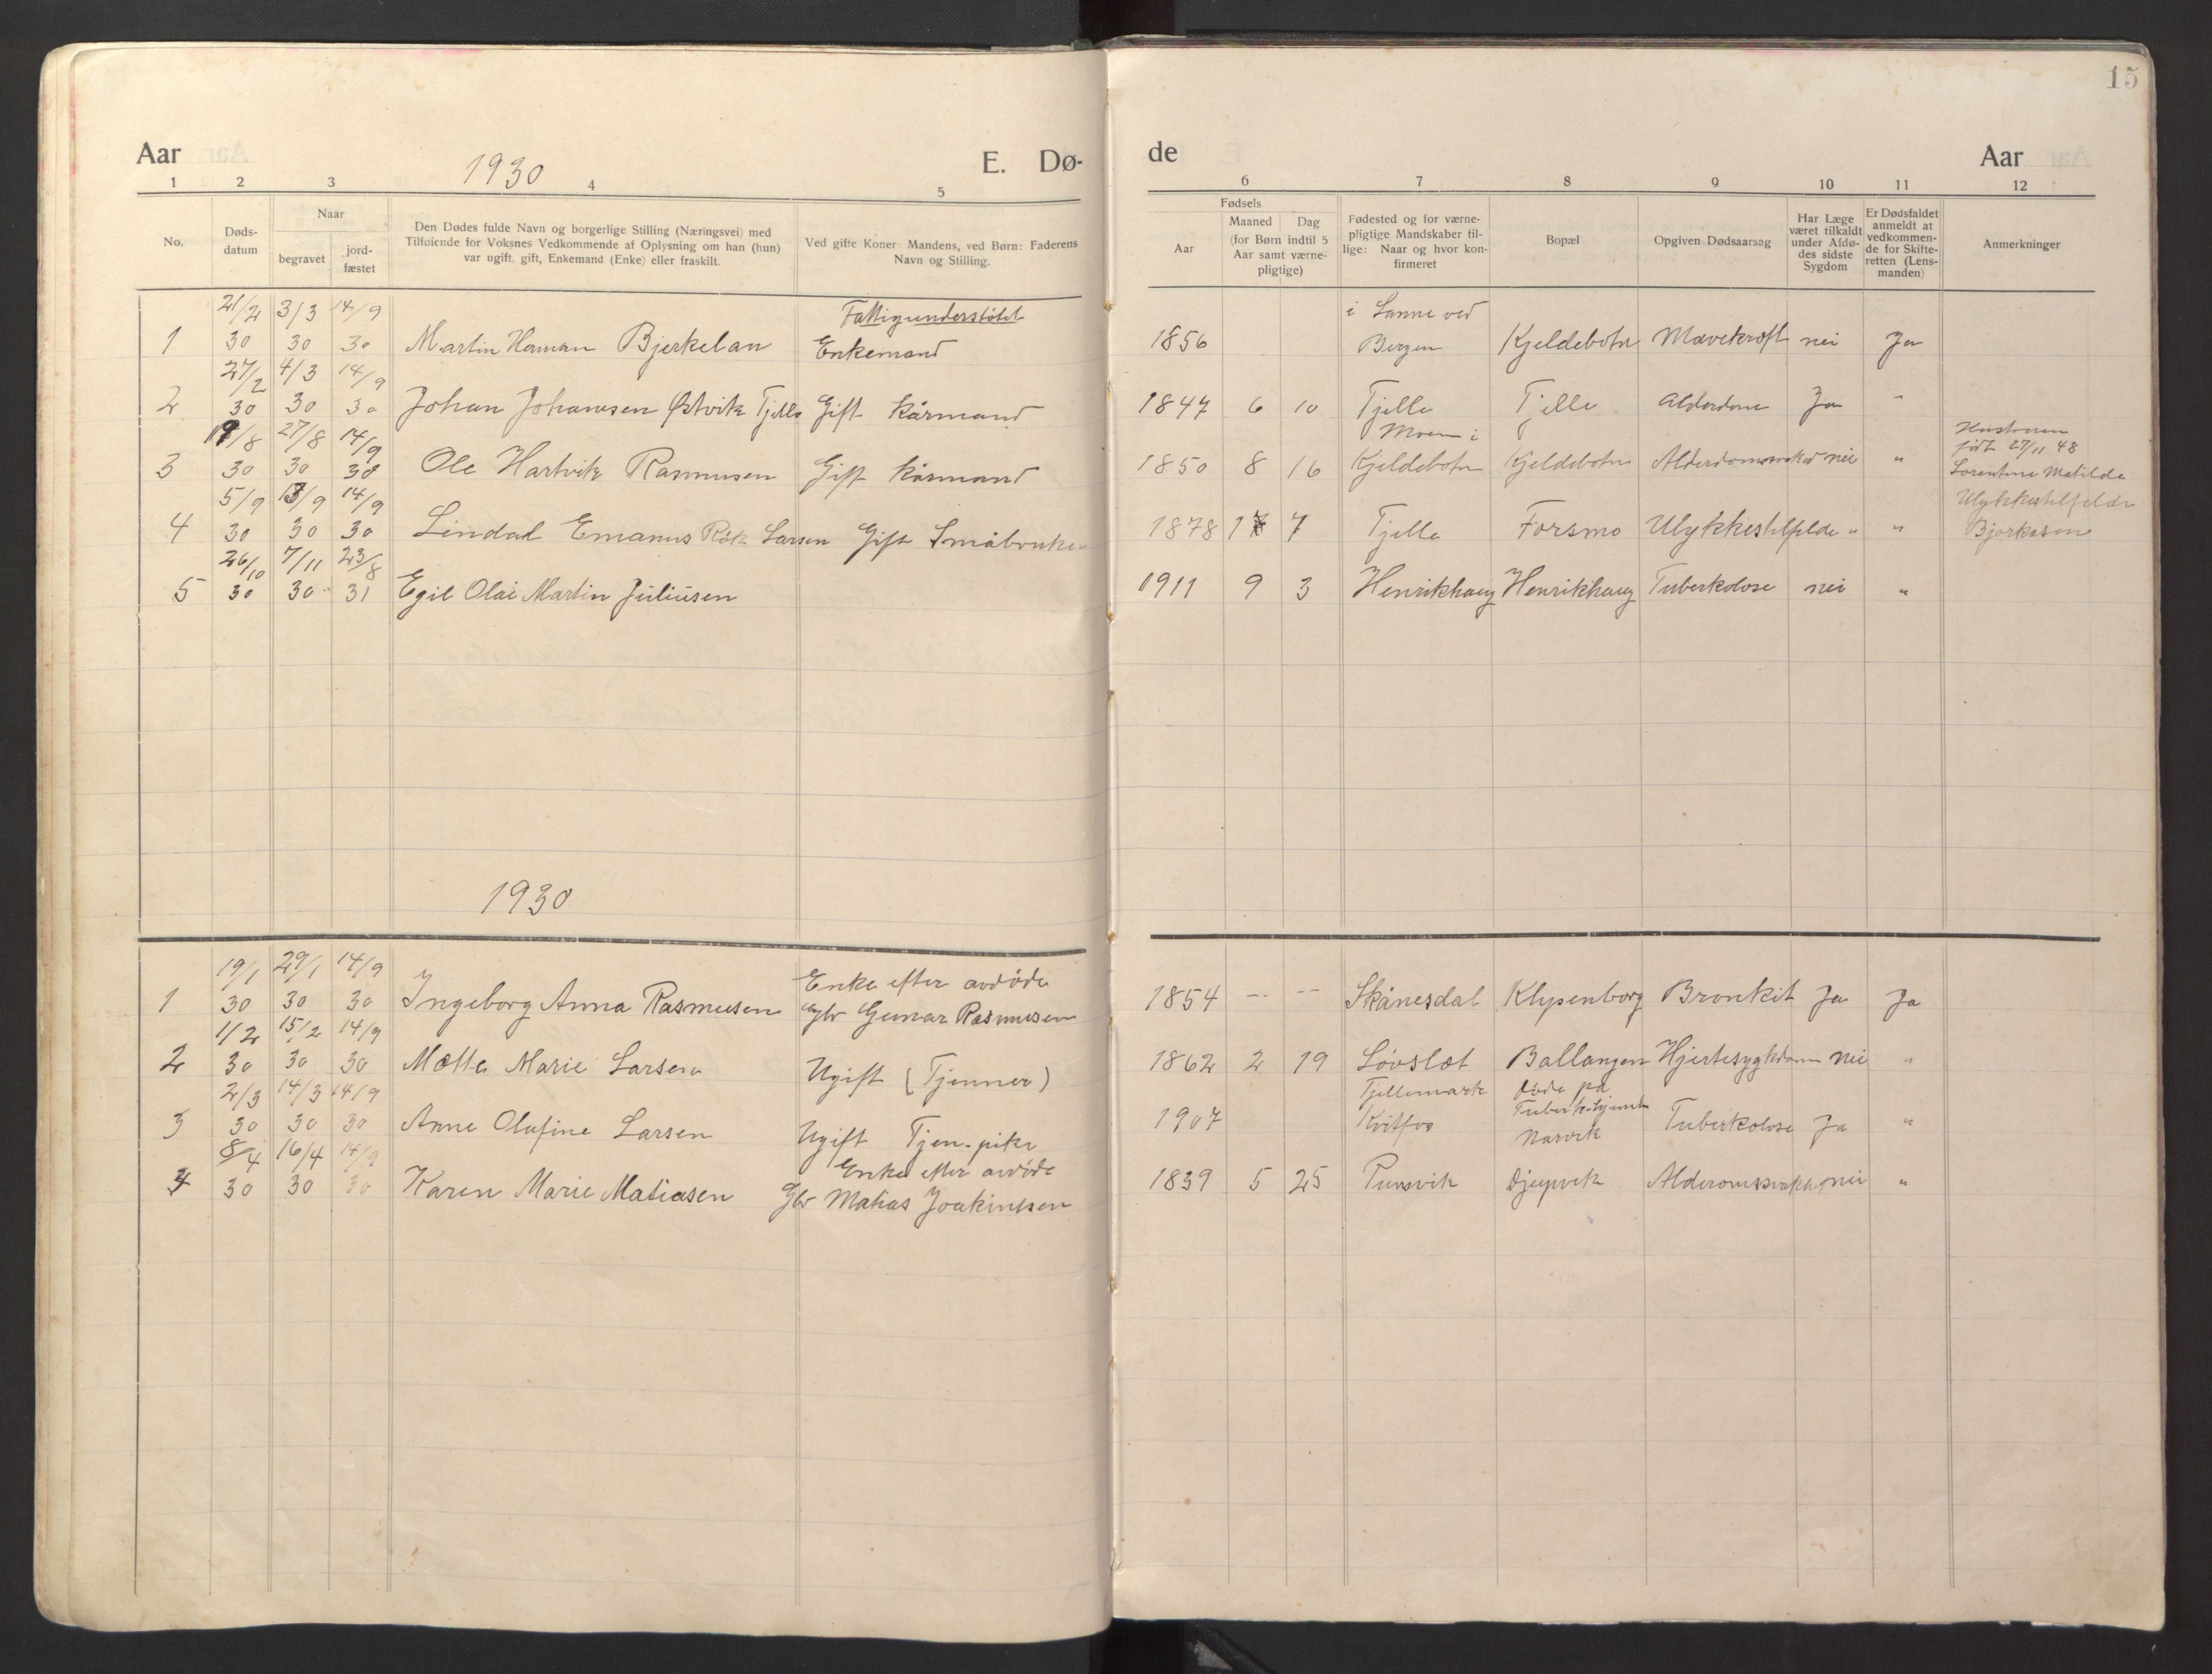 15
Aar 1930 E. Dø- de Aar
1 2 3 4 5 6 7 8 9 10 11 12
No.
Døds-
datum
Naar
begravet
jord-
fæstet
Den Dødes fulde Navn og borgerlige Stilling (Næringsvei) med
Tilføiende for Voksnes Vedkommende af Oplysning om han (hun)
var ugift, gift, Enkemand (Enke) eller fraskilt.
Ved gifte Koner: Mandens, ved Børn: Faderens
Navn og Stilling.
Fødsels
Aar
Maaned Dag
(for Børn indtil 5
Aar samt værne-
pligtige)
Fødested og for værne-
pligtige Mandskaber til-
lige: Naar og hvor kon-
firmeret
Bopæl
Opgiven Dødsaarsag
Har Læge
været tilkaldt
under Afdø-
des sidste
Sygdom
Er Dødsfaldet
anmeldt at
vedkommen-
de for Skifte-
retten (Lens-
manden)
Anmerkninger
21/2 3/3 14/9 Fattigunderstøtet i Sanne ved
1 30 30 30 Martin Herman Bjerkelan Enkemand 1856 Bergen Kjeldebotn Mavekræft nei Ja
27/2 4/3 14/9
2 30 30 30 Johan Johansen Østvik Tjelle Gift Kårmand 1847 6 10 Tjelle Tjelle Alderdom Ja "
19/8 27/8 14/9 Moen i Hustruen
3 30 30 30 Ole Hartvik Rasmusen Gift Kårmand 1850 8 16 Kjeldebotn Kjeldebotn nei " født 27/11 48
Lorentine Matilde
5/9 13/9 14/9 Ulykkestilfelde
4 30 30 30 Lindal Emanus Larsen Gift Småbruker 1878 7 Tjelle Forsmo Ulykkestilfelde " " Bjørkåsen
26/10 7/11 23/8
5 30 30 31 Egil Olai Martin Juliusen 1911 9 3 Henrikhaug Henrikhaug Tuberkolose nei "
1930
19/1 29/1 14/9 Enke efter avdøde
1 30 30 30 Ingeborg Anna Rasmusen Gbr Gunar Rasmusen 1854 -- -- Skånesdal Klypenborg Bronkit Ja Ja
1/2 15/2 14/9
2 30 30 30 Mette Marie Larsen Ugift (Tjenner) 1862 2 19 Løvslæt Ballangen Hjertesygkdom nei "
2/3 14/3 14/9 Tjellemark døde på
3 30 30 30 Anne Olufine Larsen Ugift Tjen-pike 1907 Kvitfos Narvik Tuberkolose Ja "
8/4 16/4 14/9 Enke efter avdøde
4 30 30 30 Karen Marie Matiasen Gbr Matias Joakimsen 1839 5 25 Pundsvik Djupvik nei "